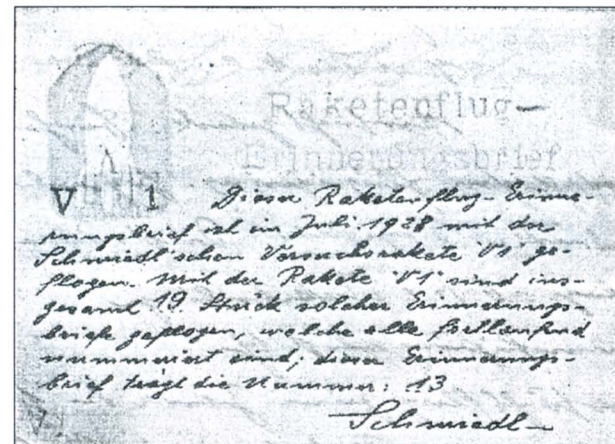 Raketenflug-
Erinnerungsbrief
V 1
Dieser Raketenflug-Erinne-
rungsbrief ist im Juli 1928 mit der
Schmiedl'schen Versuchsrakete "V1" ge-
flogen. Mit der Rakete "V1" sind ins-
gesamt 19 Stück solcher Erinnerungs-
briefe geflogen, welche alle fortlaufend
nummeriert sind; dieser Erinnerungs-
brief trägt die Nummer: 13
Schmiedl